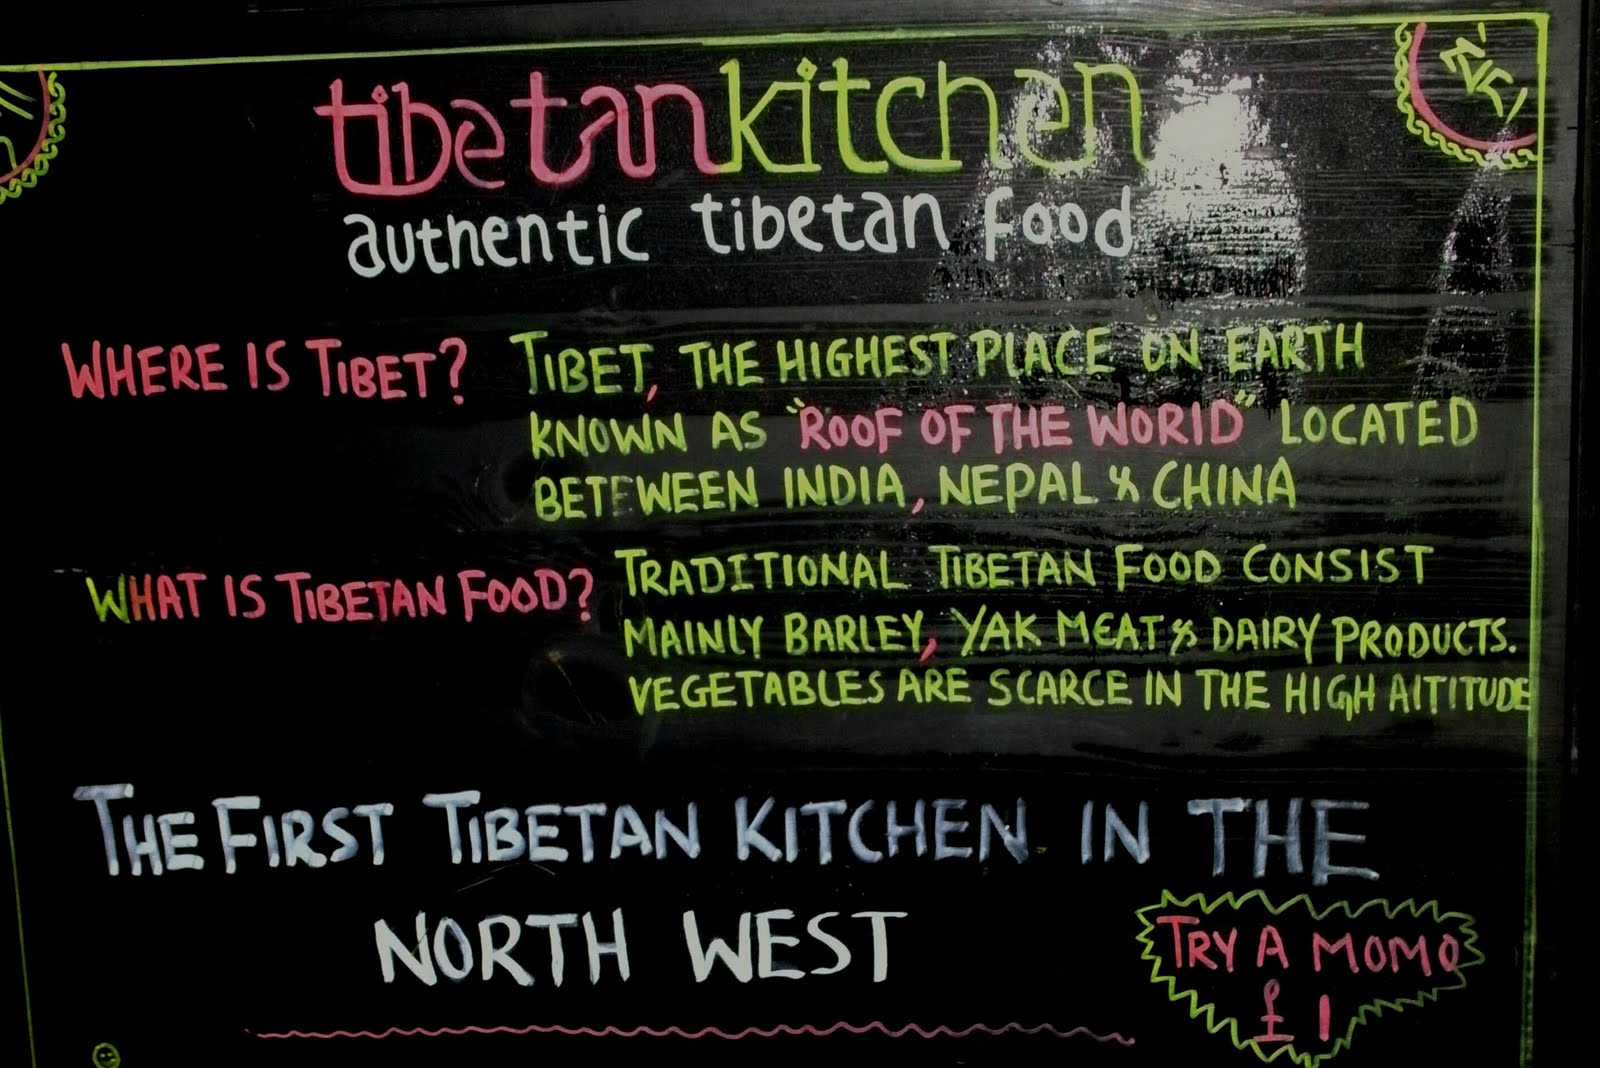 tibetankitchen
authentic tibetan food
WHERE IS TIBET? TIBET, THE HIGHEST PLACE ON EARTH
KNOWN AS "ROOF OF THE WORLD" LOCATED
BETEWEEN INDIA, NEPAL & CHINA
WHAT IS TIBETAN FOOD? TRADITIONAL TIBETAN FOOD CONSIST
MAINLY BARLEY, YAK MEAT & DAIRY PRODUCTS.
VEGETABLES ARE SCARCE IN THE HIGH ALTITUDE
THE FIRST TIBETAN KITCHEN IN THE
NORTH WEST
TRY A MOMO
£1